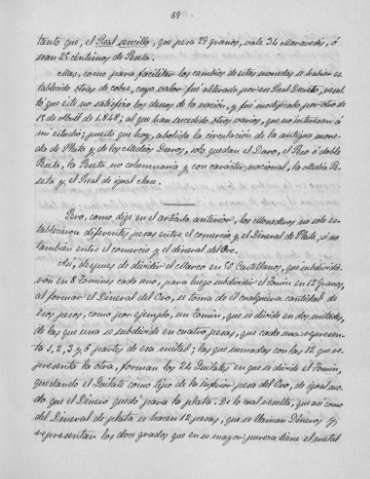 89
tanto que, el Real sencillo, que pesa 28 granos, vale 34 Maravedís, ó
sean 25 céntimos de Peseta.
Mas, como para facilitar los cambios de estas monedas se habían es-
tablecido otras de cobre, cuyo valor fué alterado por un Real Decreto, resul-
tó que esto no satisfizo los deseos de la nación, y fué modificado por otro de
15 de Abril de 1848; al que han sucedido otros varios, que no interesan á
mi estudio; puesto que hoy, abolida la circulación de la antigua mone-
da de Plata y de los Medios Duros, sólo quedan el Duro, el Peso ó doble
Peseta, la Peseta no columnaria y con carácter nacional, la Media Pe-
seta y el Real de igual clase.
Pero, como dije en el artículo anterior, los Monederos no solo es-
tablecieron diferentes pesas entre el comercio y el Dineral de Plata, sino
también entre el comercio y el dineral del Oro.
Así, despues de dividir el Marco en 50 Castellanos, que subdividie-
ron en 8 Tomines cada uno, para luego subdividir el Tomin en 12 granos,
al formar el Dineral del Oro, se toma de él cualquiera cantidad de
esos pesos, como por ejemplo, un Tomin, que se divide en dos mitades,
de las que una se subdivide en cuatro pesas, que cada una represen-
ta 1, 2, 3 y 6 partes de esa mitad; las que sumadas con las 12 que re-
presenta la otra, forman los 24 Quilates en que se divide el Tomin,
quedando el Quilate como tipo de la inferior pesa del Oro, de igual mo-
do que el Dinero quedó para la plata. De lo cual resulta, que así como
del Dineral de plata se hacen 12 pesas, que se llaman Dineros y
representan los doce grados que en su mayor pureza tiene el metal